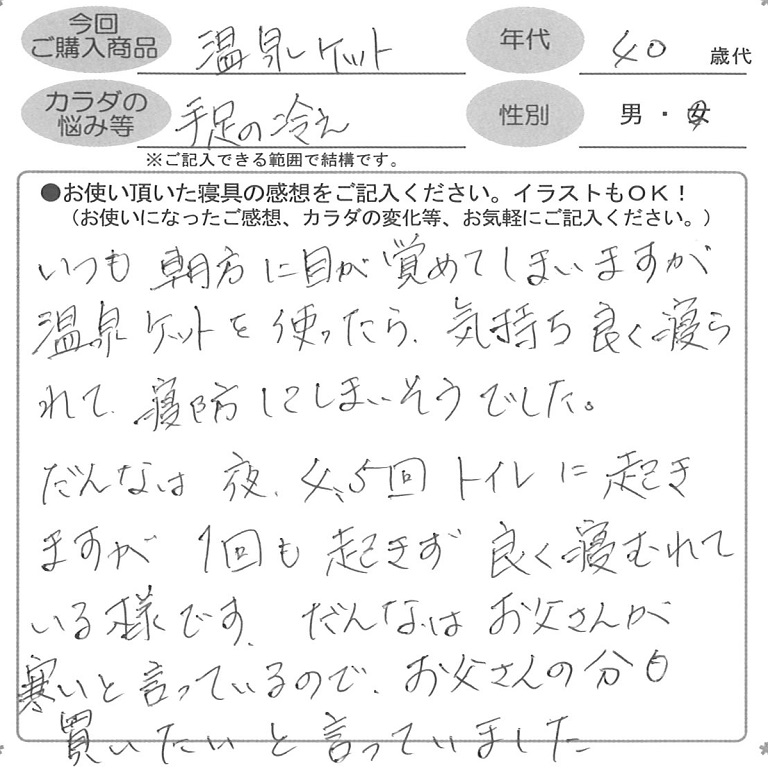 今回
ご購入商品
温泉ケット
年代
40 歳代
カラダの
悩み等
手足の冷え
性別
男・女
※ご記入できる範囲で結構です。
●お使い頂いた寝具の感想をご記入ください。イラストもOK！
（お使いになったご感想、カラダの変化等、お気軽にご記入ください。）
いつも 朝方に目が覚めてしまいますが
温泉ケットを使ったら、気持ち良く寝ら
れて、寝防してしまいそうでした。
だんなは 夜、4、5回 トイレに起き
ますが 1回も起きず 良く寝むれて
いる様です、だんなはお父さんが
寒いと言っているので、お父さんの分も
買いたいと言っていました